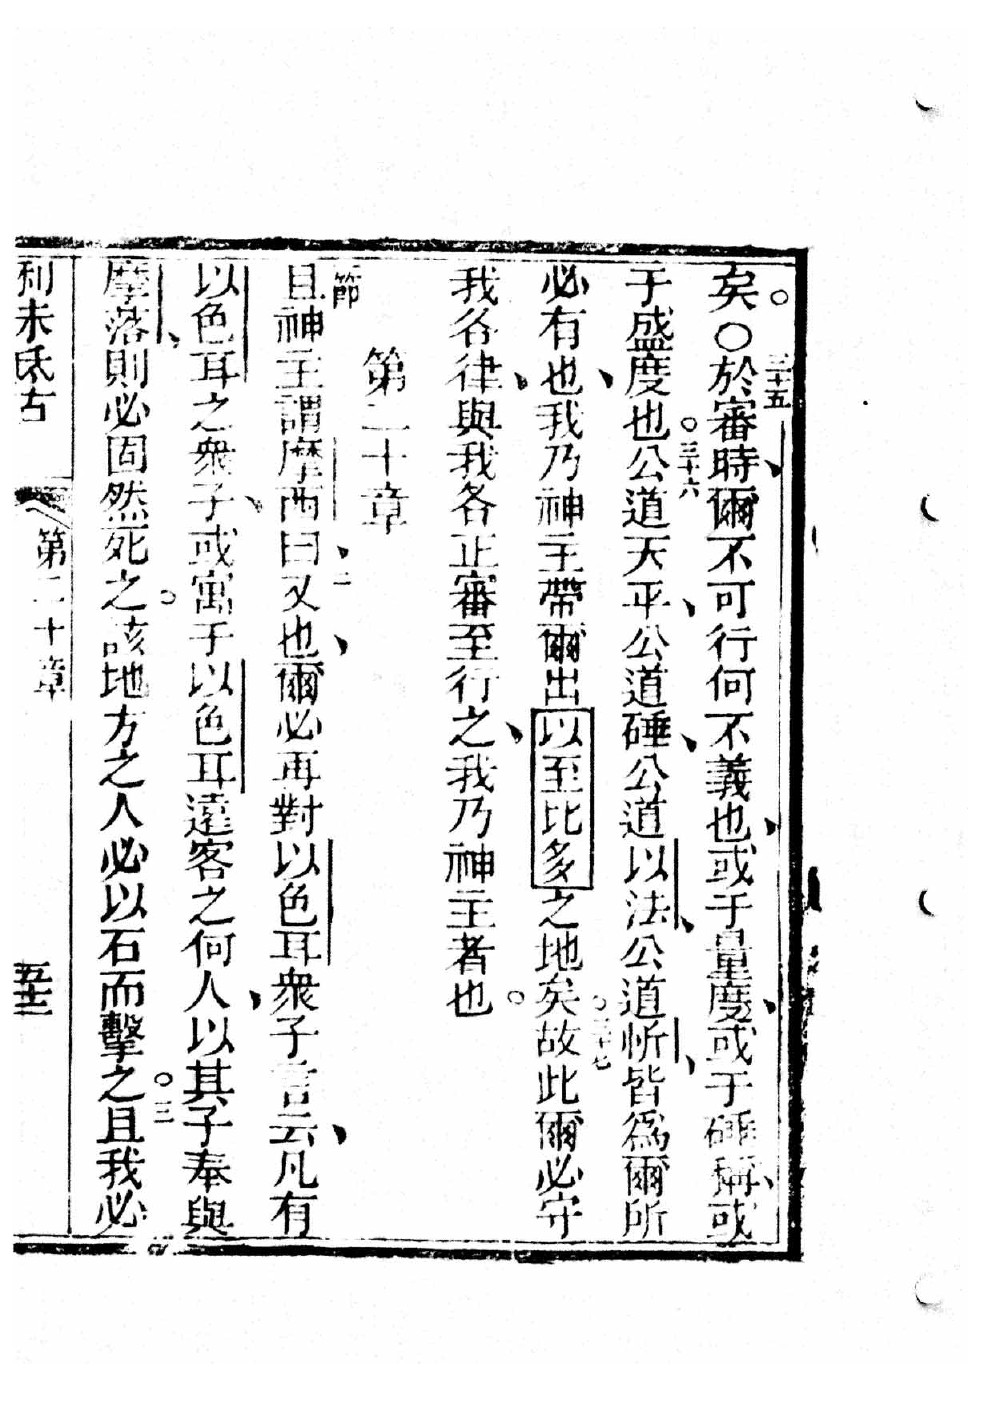 矣。〇三十五於審時、爾不可行何不義也、或于量度、或于硾稱、或
于盛度也。三十六公道天平、公道硾、公道以法、公道忻、皆為爾所
必有也、我乃神主帶爾出以至比多之地矣。三十七故此爾必守
我各律、與我各正審至行之、我乃神主者也。
第二十章
節
且神主謂摩西曰、二又也、爾必再對以色耳眾子言云、凡有
以色耳之眾子、或寓于以色耳遠客之何人、以其子奉與
摩落、則必固然死之。該地方之人必以石而擊之。三且我必
利未氏古
第二十章
五十三